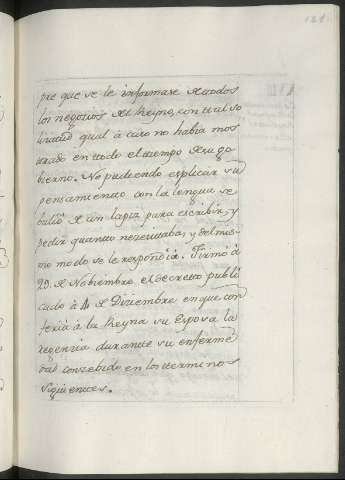 121
pre que se le informase de todos
los negocios del Reyno, con tal so
licitud qual à caro no habia mos
trado en todo el tiempo de su go
bierno. No pudiendo esplicar su
pensamiento con la lengua se
balio de un lapiz para escribir, y
pedir quanto nezesitaba, y del mis
mo modo se le respondia. Firmó à
29. de Nobiembre el decreto publi
cado à 4 de Diziembre en que con
feria à la Reyna su Esposa la
regenzia durante su enferme
dad conzebido en los terminos
siguientes.